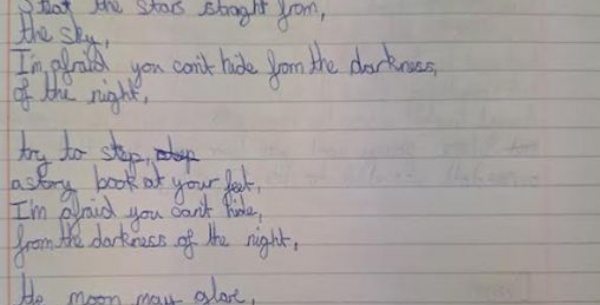 Steal the stars straght from,
the sky,
I'm afraid you can't hide from the darkness,
of the night,
try to step, step
a story book at your feet,
I'm afraid you can't hide,
from the darkness of the night,
the moon may glow,